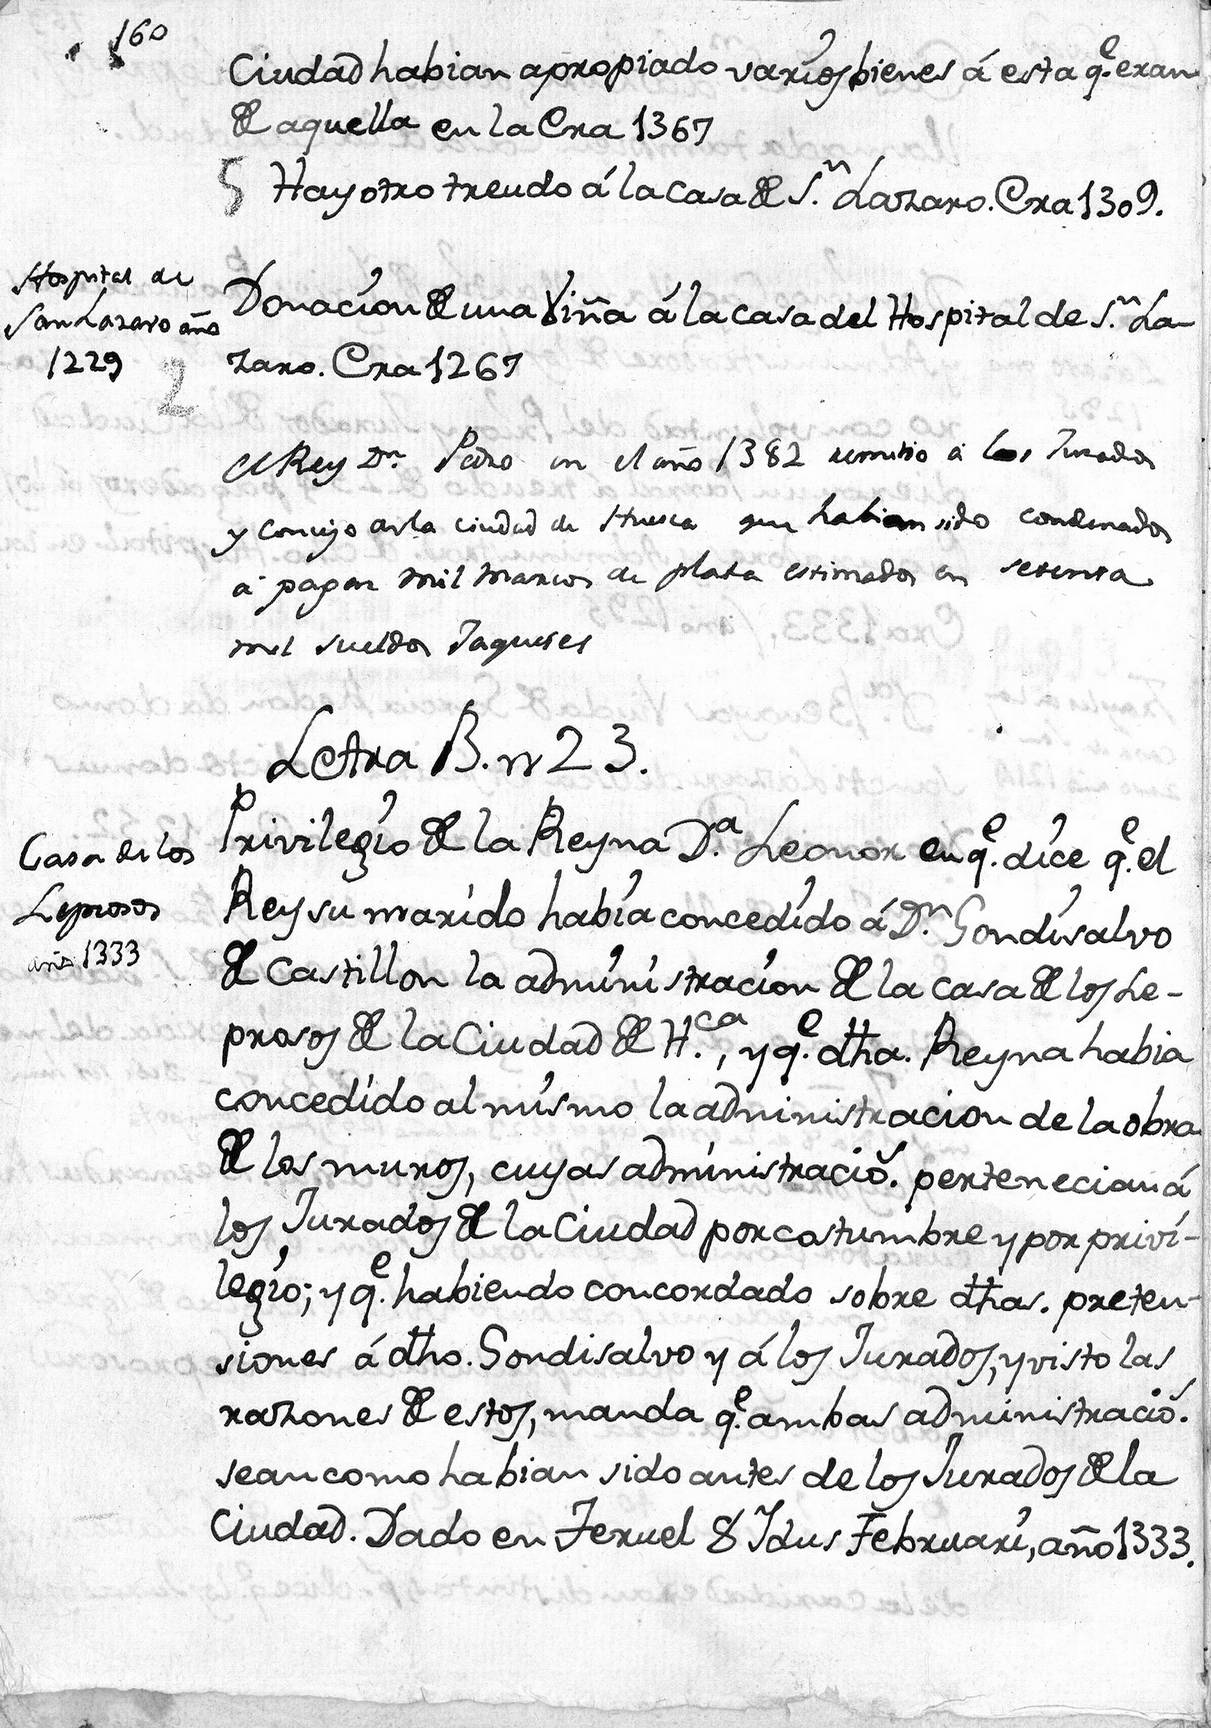 160
Ciudad habian apropiado varios bienes á esta q.e eran
de aquella en la Era 1367
5 Hay otro treudo á la casa de S.n Lazaro. Era 1309.
Hospital de
San Lazaro año
1229
2
Donacion de una Viña á la casa del Hospital de S.n La-
zaro. Era 1267
El Rey Dn. Pedro en el año 1382 remitio a los Jurados
y concejo de la ciudad de Huesca que habian sido condenados
a pagar mil marcos de plata estimados en setenta
mil sueldos Jaqueses
Letra B. n 23.
Casa de los
Leprosos
año 1333
Privilegio de la Reyna D.a Leonor en q.e dice q.e el
Rey su marido habia concedido á D.n Gondisalvo
de Castillon la administracion de la casa de los Le-
prosos de la Ciudad de H.ca, y q.e dha. Reyna habia
concedido al mismo la administracion de la obra
de los muros, cuyas administració. pertenecian á
los Jurados de la Ciudad por costumbre y por privi-
legio; y q.e habiendo concordado sobre dhas. preten-
siones á dho. Gondisalvo y á los Jurados, y visto las
razones de estos, manda q.e ambas administració.
sean como habian sido antes de los Jurados de la
Ciudad. Dado en Teruel 8 Idus Februari, año 1333.